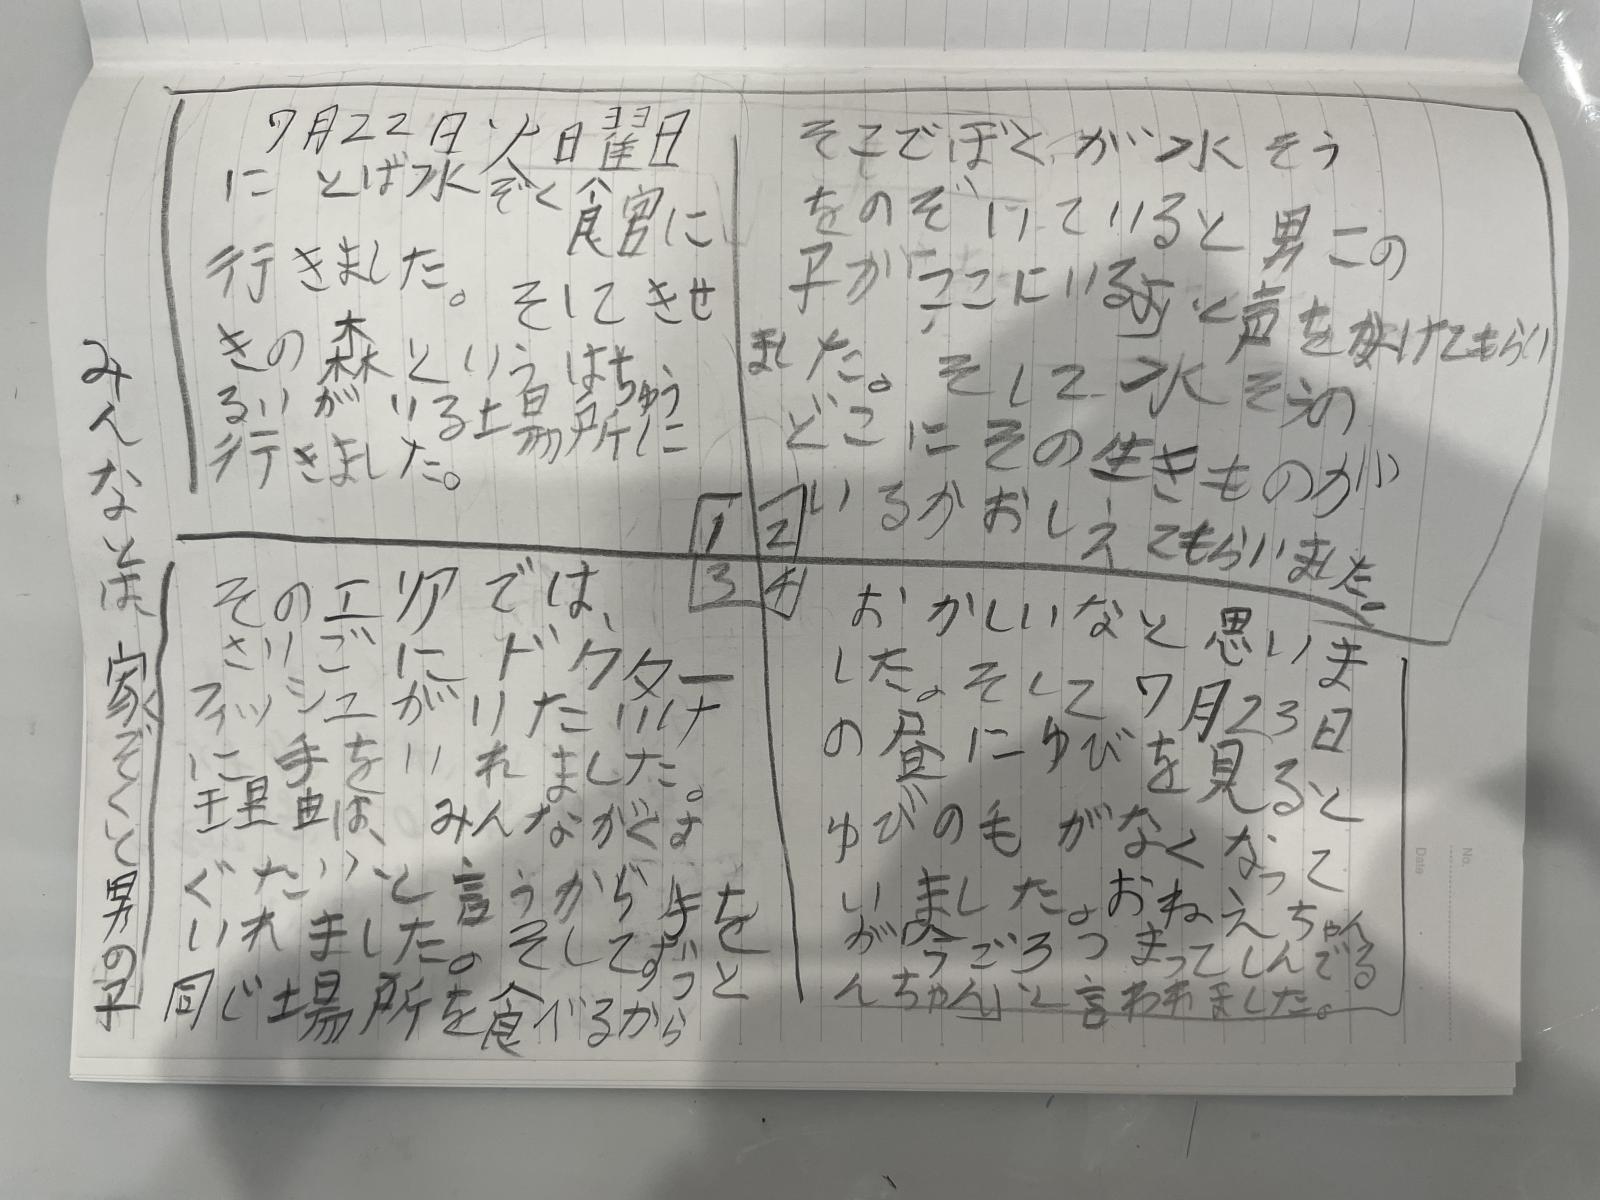 7月22日火曜日
に とば水ぞく食官に
行きました。そしてきせ
きの森というはちゅう
るいがいる土場所に
行きました。
そこでぼくが水そう
をのぞいていると男この
子がここにいるよと声を掛けてもらい
ました。そして水そうの
どこにその生きものが
いるかおしえてもらいました。
1 2
3 4
そのエリアでは、
さいごにドクター
フィッシュがいた
に手をいれました。
理由は、みんながくす
ぐたいと言うから手を
いれました。そしてずっと
同じ場所を食べるから
おかしいなと思いま
した。そして7月23日
の昼にゆびを見ると
ゆびのもがなくなって
いました。おねえちゃん
が今ごろつまってしんでる
んちゃん」と言われました。
みんなとは、家ぞくと男の子
No.
Date